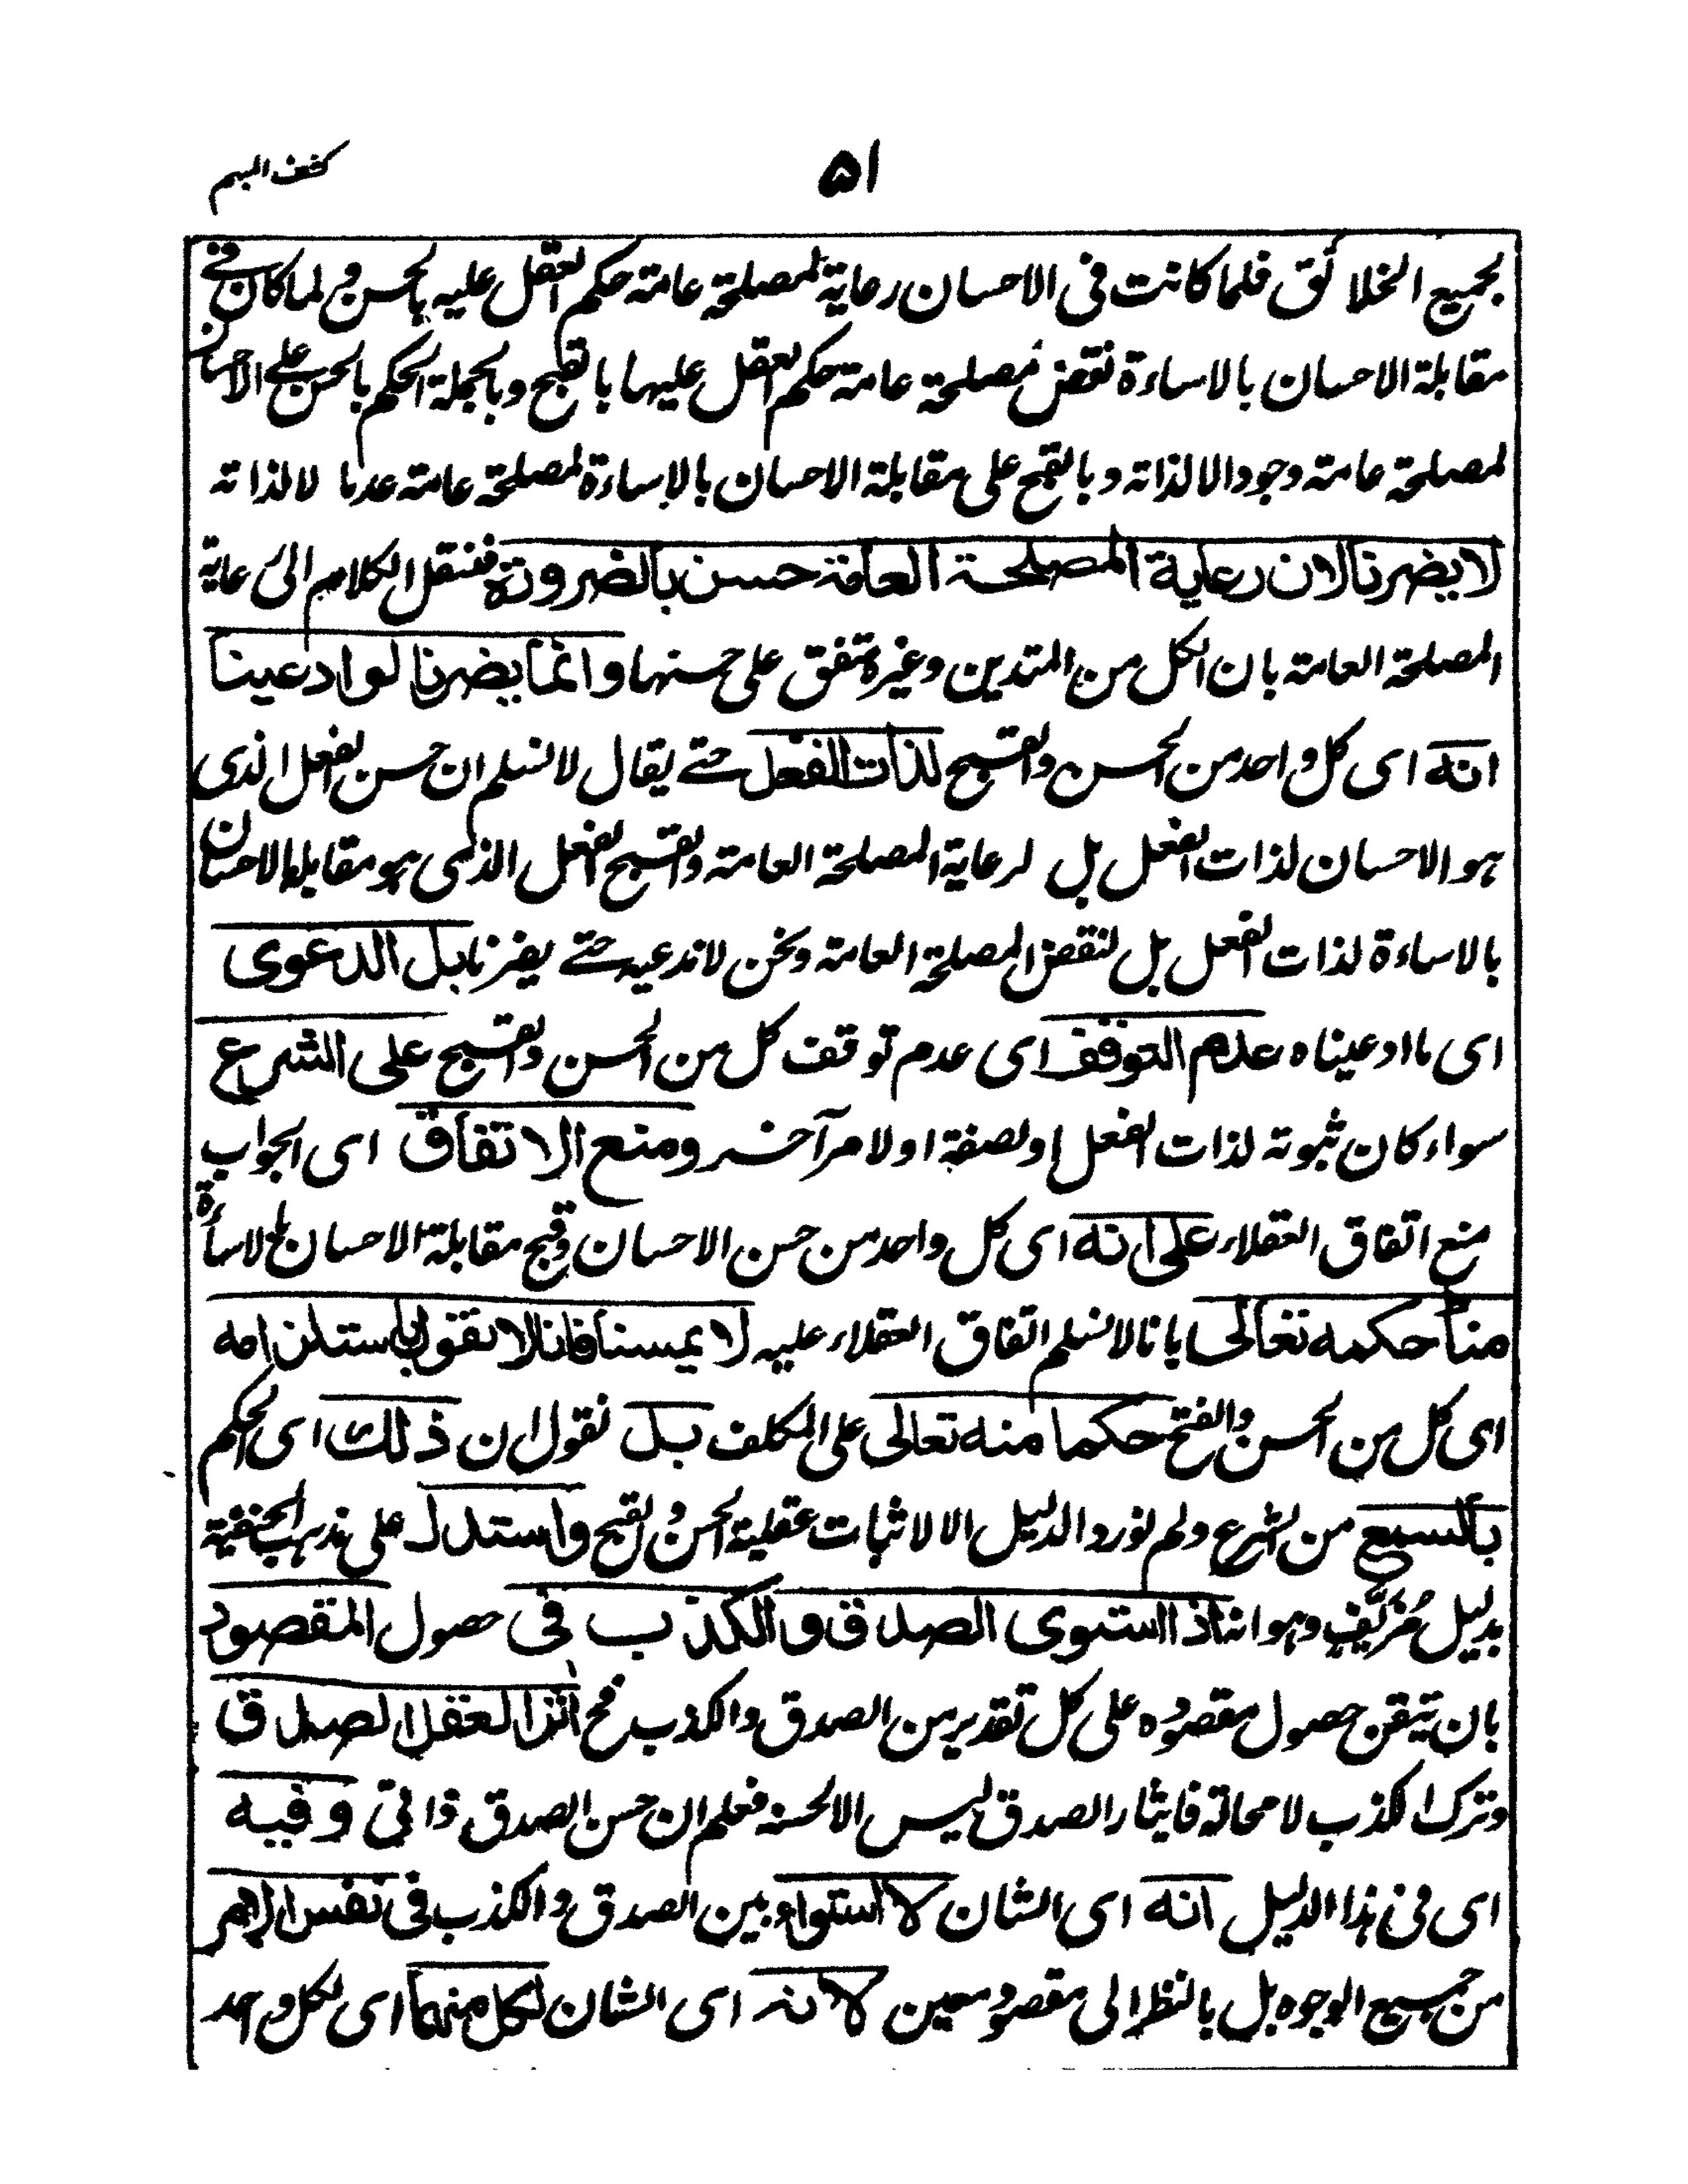 ۵۱
كشف المبهم
لجميع الخلائق فلما كانت فى الاحسان رعاية لمصلحة عامة حكم العقل عليه بالحسن ولما كان فے
مقابلة الاحسان بالاساءة نقض مصلحة عامة حكم العقل عليها بالقبح وبالجملة الحكم بالحسن علے الاحسان
لمصلحة عامة وجودا لا لذاته وبالقبح على مقابلة الاحسان بالاساءة لمصلحة عامة عدما لا لذاته
لا يضرنا لان رعاية المصلحة العامة حسن بالضرورة فننقل الكلام الى رعاية
المصلحة العامة بان الكل من المتدين وغيره متفق على حسنها وانما يضرنا لو ادعينا
انه اى كل واحد من الحسن والقبح لذات الفعل حتے يقال لا نسلم ان حسن الفعل الذى
هو الاحسان لذات الفعل بل لرعاية المصلحة العامة والقبح الفعل الذى هو مقابلة الاحسان
بالاساءة لذات الفعل بل لنقض المصلحة العامة ونحن لا ندعيه حتے يضرنا بل الدعوى
اى ما ادعيناه عدم التوقف اى عدم توقف كل من الحسن والقبح على الشرع
سواء كان ثبوته لذات الفعل او لصفة او لامر آخر ومنع الاتفاق اى الجواب
منع اتفاق العقلاء على انه اى كل واحد من حسن الاحسان وقبح مقابلة الاحسان بالاساءة
مناط حكمه تعالى بانا لا نسلم اتفاق العقلاء عليه لا يمسنا فانا لا نقول باستلزامه
اى كل من الحسن والقبح حكما منه تعالى على المكلف بل نقول ان ذلك اى الحكم
بالسمع من الشرع ولم نورد الدليل الا لاثبات عقلية الحسن والقبح واستدل على مذهب الحنفية
بدليل مُزَيَّفٍ وهو انه اذا استوى الصدق والكذب فى حصول المقصود
بان تيقن حصول مقصوده على كل تقدير من الصدق والكذب فح اٰثر العقل الصدق
وترك الكذب لا محالة فايثار الصدق ليس الا لحسنه فعلم ان حسن الصدق ذاتى وفيه
اى فى هذا الدليل انه اى الشان لا استواء بين الصدق والكذب فى نفس الامر
من جميع الوجوه بل بالنظر الى مقصود معين لانه اى الشان لكل منهما اى لكل واحد